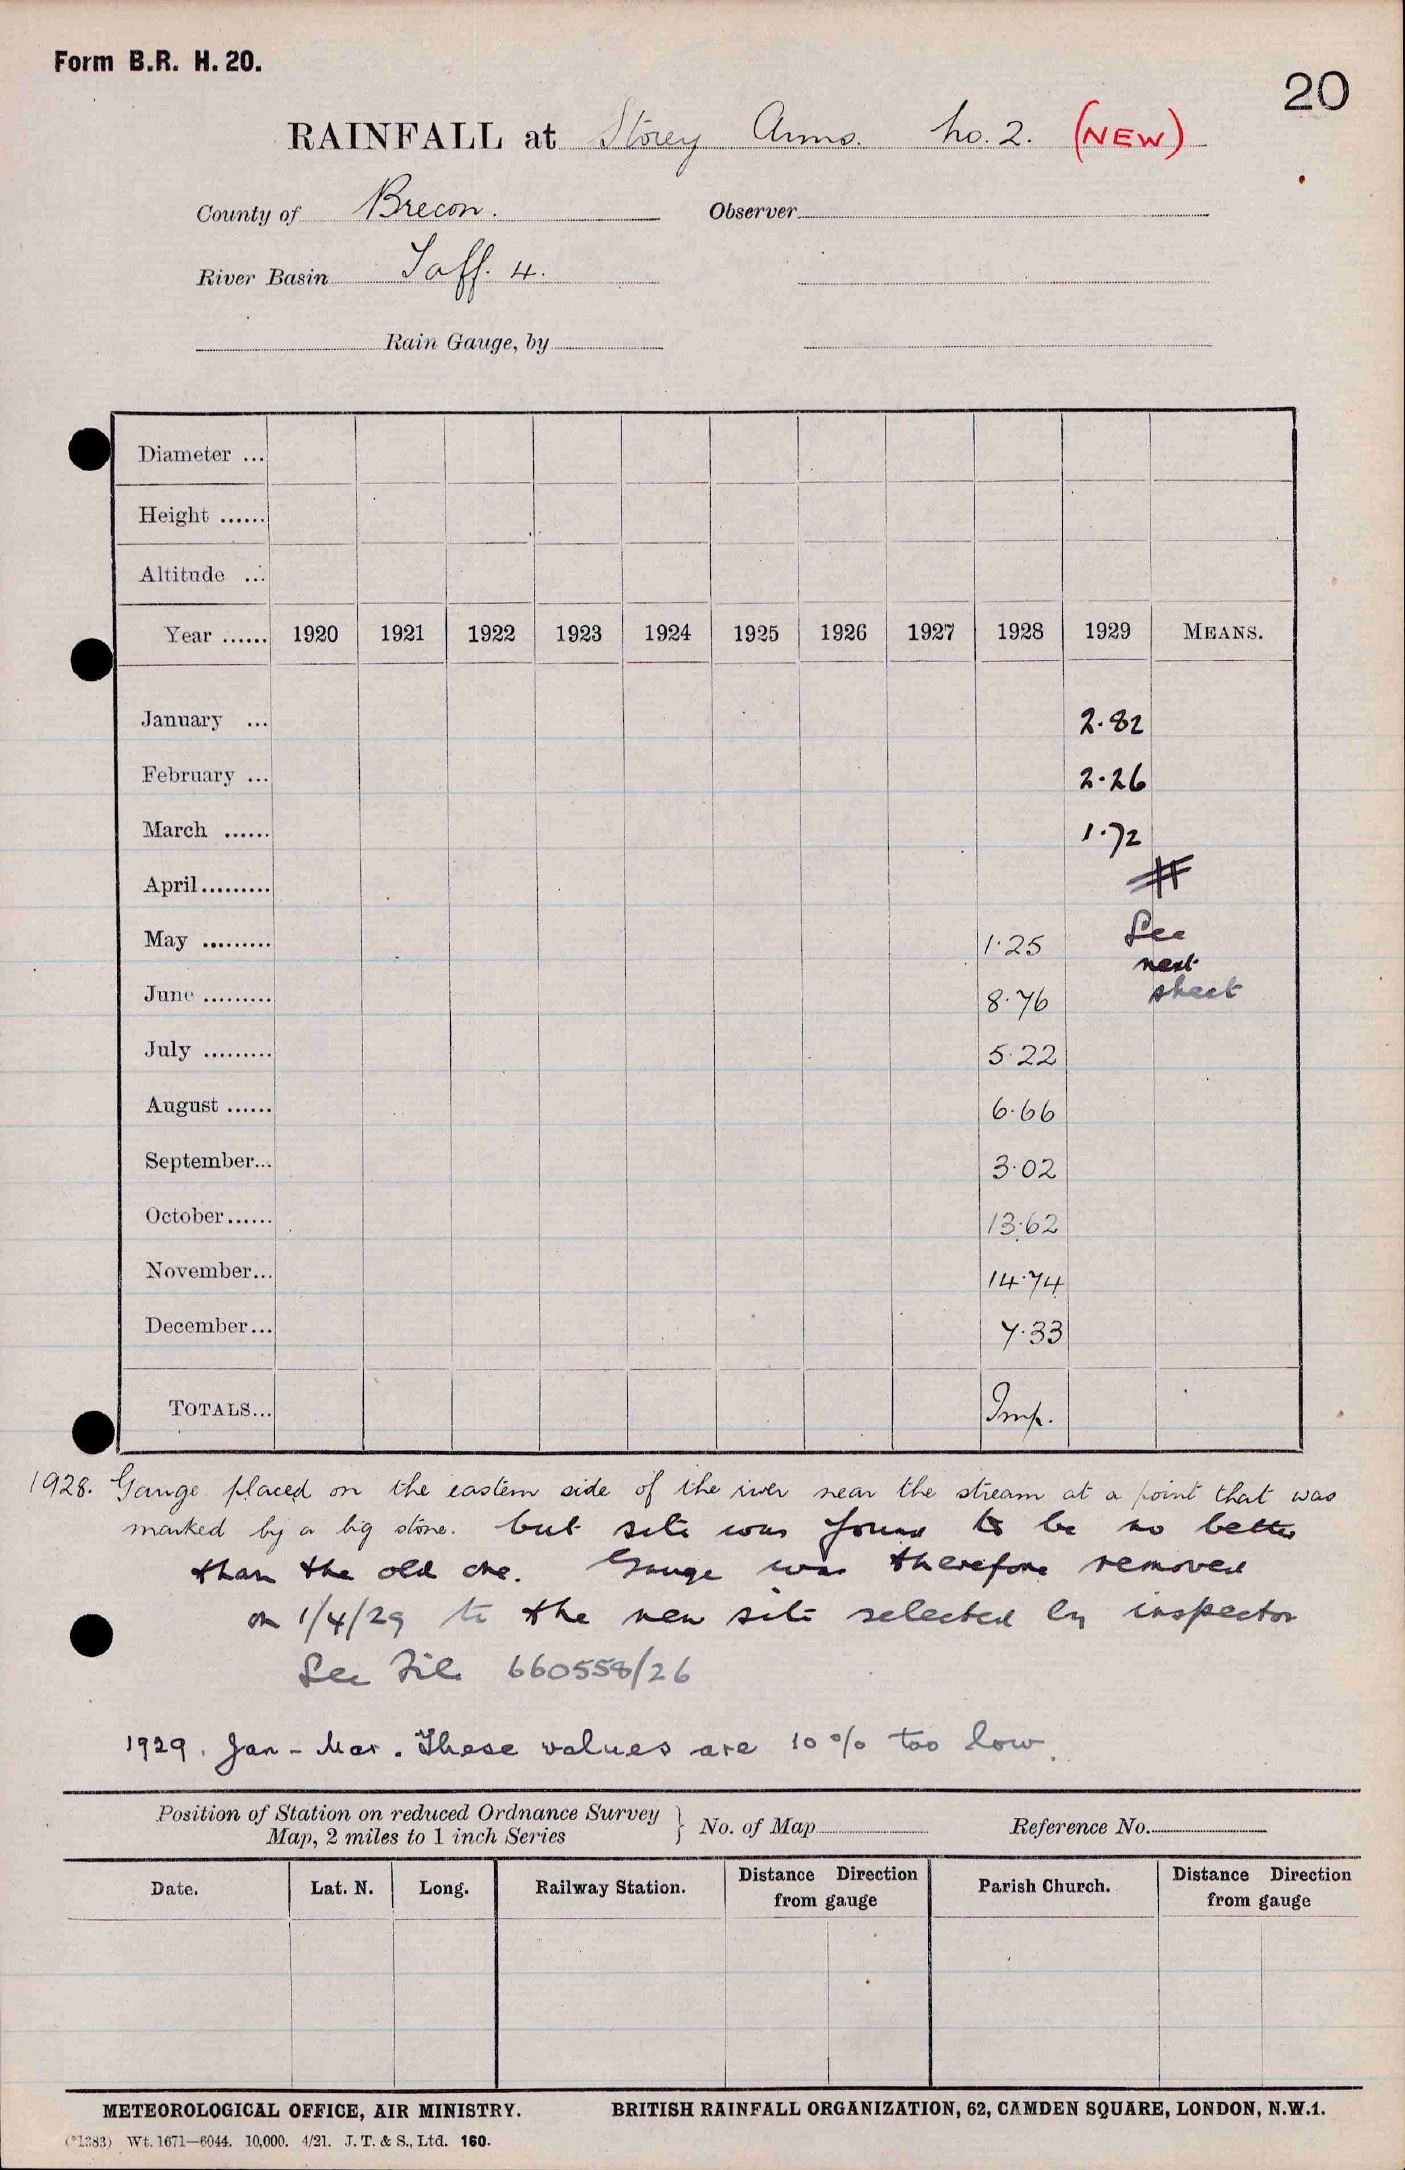 Form B.R. H. 20.
20
RAINFALL at Storey Arms. No. 2. (NEW)
County of Brecon. Observer
River Basin Taff. 4.
Rain Gauge, by
Diameter ...
Height ......
Altitude ...
Year ...... 1920 1921 1922 1923 1924 1925 1926 1927 1928 1929 MEANS.
January ... 2.82
February ... 2.26
March ...... 1.72
April......... #
May ......... 1.25 See
next
June ......... 8.76 sheet
July ......... 5.22
August ...... 6.66
September... 3.02
October...... 13.62
November... 14.74
December... 7.33
TOTALS... Imp.
1928. Gauge placed on the eastern side of the river near the stream at a point that was
marked by a big stone. but site was found to be no better
than the old one. Gauge was therefore removed
on 1/4/29 to the new site selected by inspector
See File 660558/26
1929. Jan - Mar. These values are 10% too low.
Position of Station on reduced Ordnance Survey
Map, 2 miles to 1 inch Series } No. of Map Reference No.
Date. Lat. N. Long. Railway Station. Distance Direction from gauge Parish Church. Distance Direction from gauge
METEOROLOGICAL OFFICE, AIR MINISTRY. BRITISH RAINFALL ORGANIZATION, 62, CAMDEN SQUARE, LONDON, N.W.1.
(*1383) Wt. 1671—6044. 10,000. 4/21. J. T. & S., Ltd. 160.